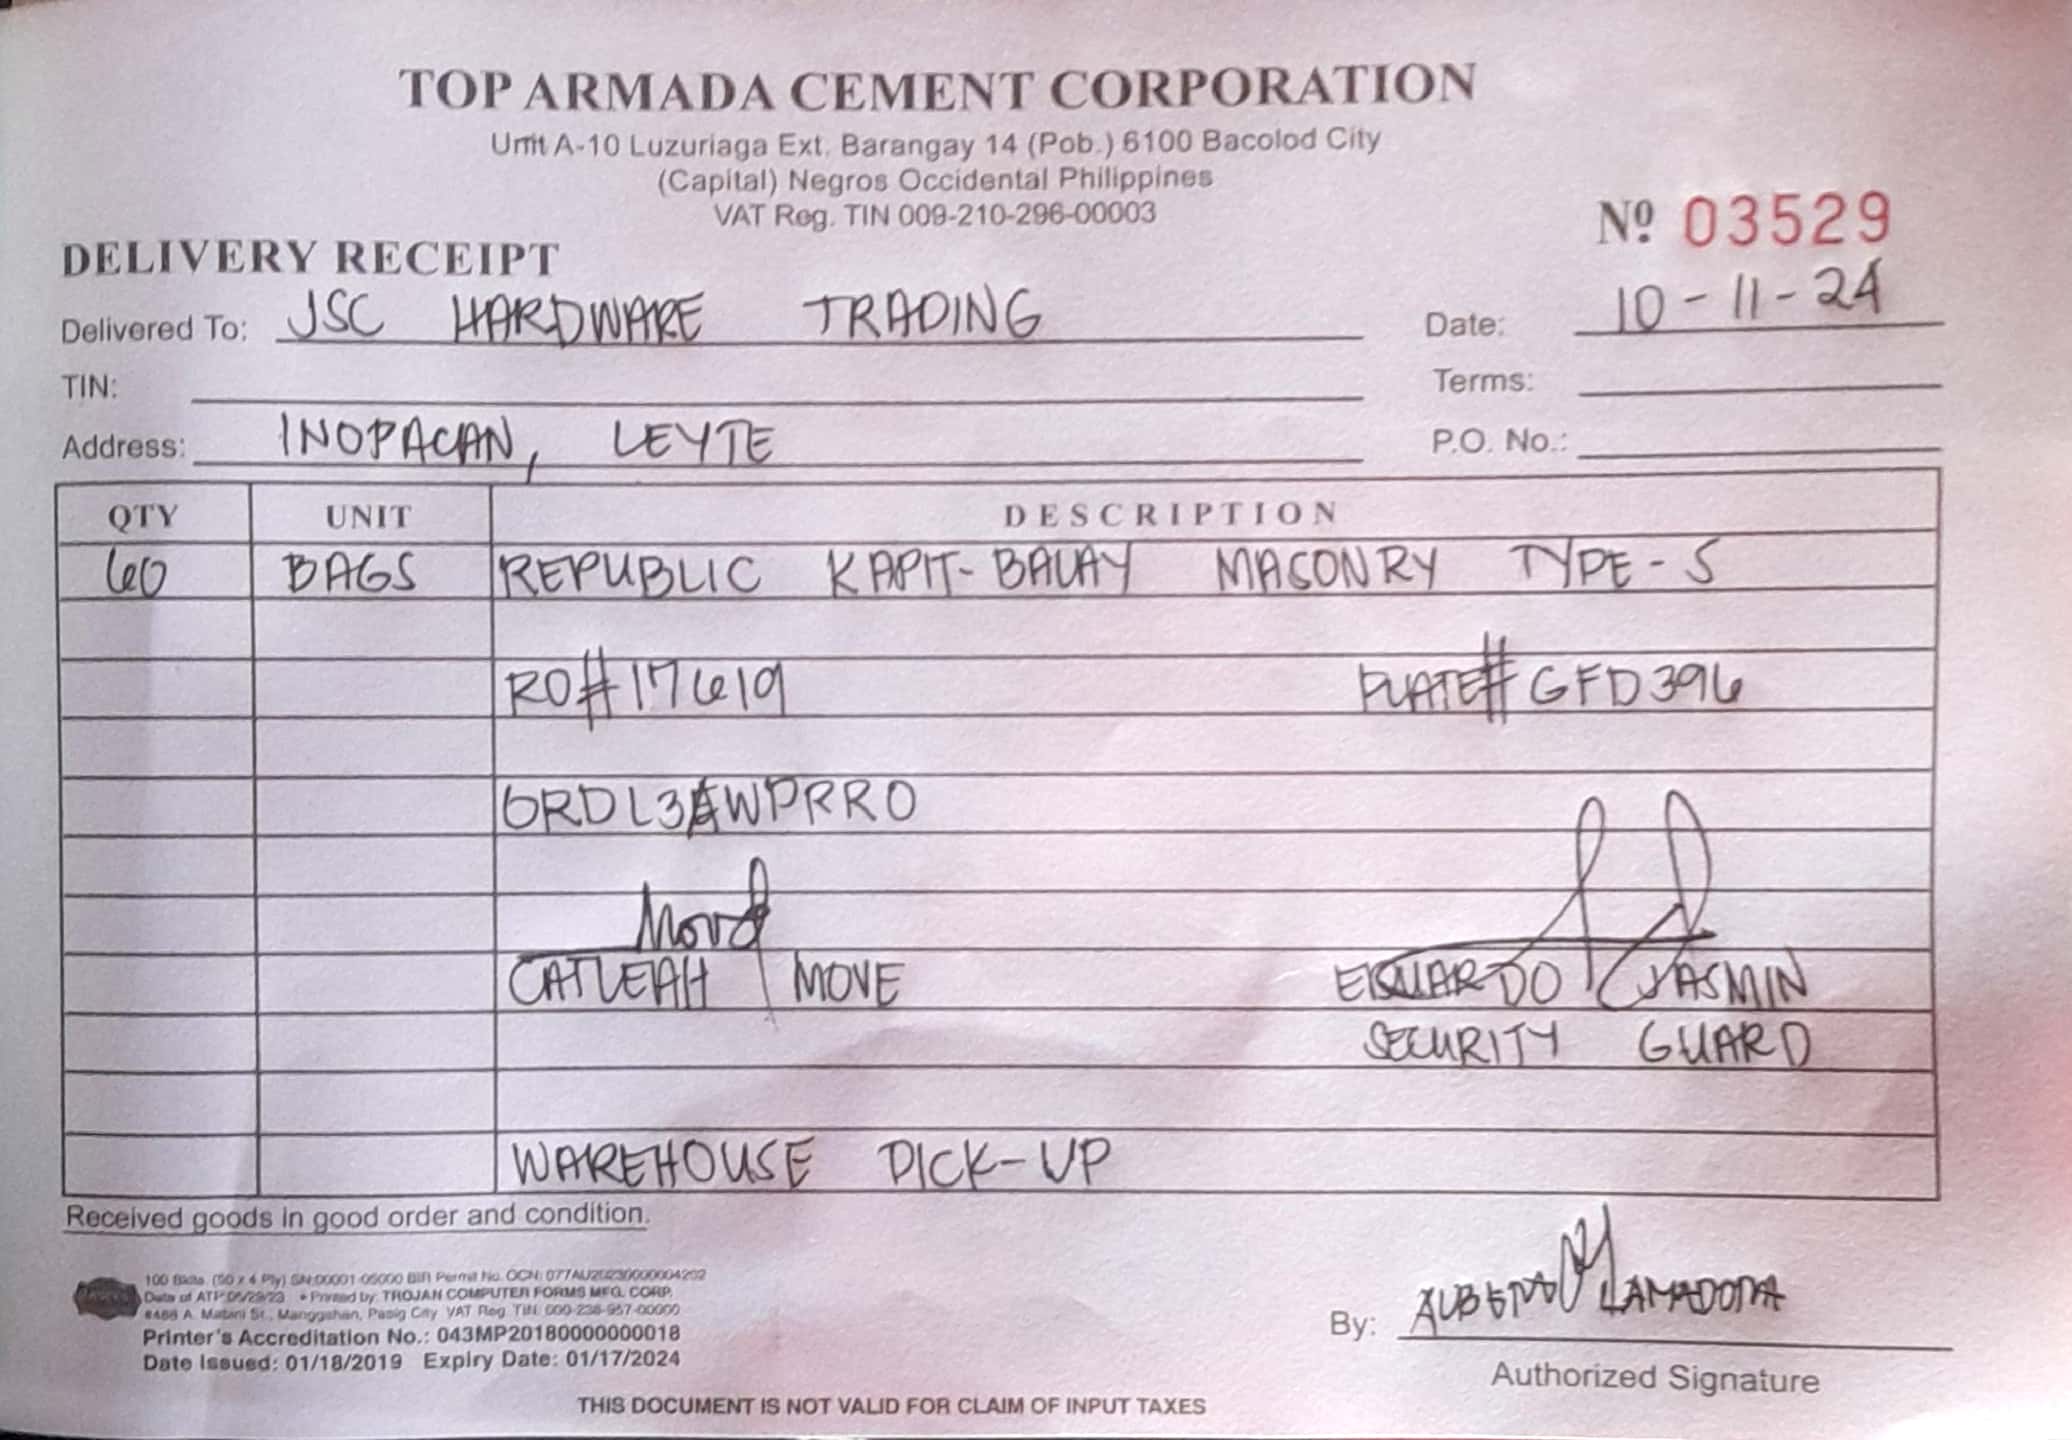 TOP ARMADA CEMENT CORPORATION
Unit A-10 Luzuriaga Ext. Barangay 14 (Pob.) 6100 Bacolod City
(Capital) Negros Occidental Philippines
VAT Reg. TIN 009-210-296-00003
Nº 03529
DELIVERY RECEIPT
Delivered To: JSC HARDWARE TRADING Date: 10-11-24
TIN: Terms:
Address: INOPACAN, LEYTE P.O. No.:
QTY UNIT DESCRIPTION
60 BAGS REPUBLIC KAPIT-BALAY MASONRY TYPE-S
RO#17619 PLATE# GFD396
CATLEAH MOVE JASMIN
SECURITY GUARD
WAREHOUSE PICK-UP
Received goods in good order and condition.
100 Bklts. (50 x 4 Ply) SN:00001-05000 BIR Permit No. OCN: 077AU20230000004202
Date of ATP:05/29/23 • Printed by: TROJAN COMPUTER FORMS MFG. CORP.
St., Manggahan, Pasig City VAT Reg. TIN: 000-238-957-00000
Printer's Accreditation No.: 043MP20180000000018
Date Issued: 01/18/2019 Expiry Date: 01/17/2024
By:
Authorized Signature
THIS DOCUMENT IS NOT VALID FOR CLAIM OF INPUT TAXES